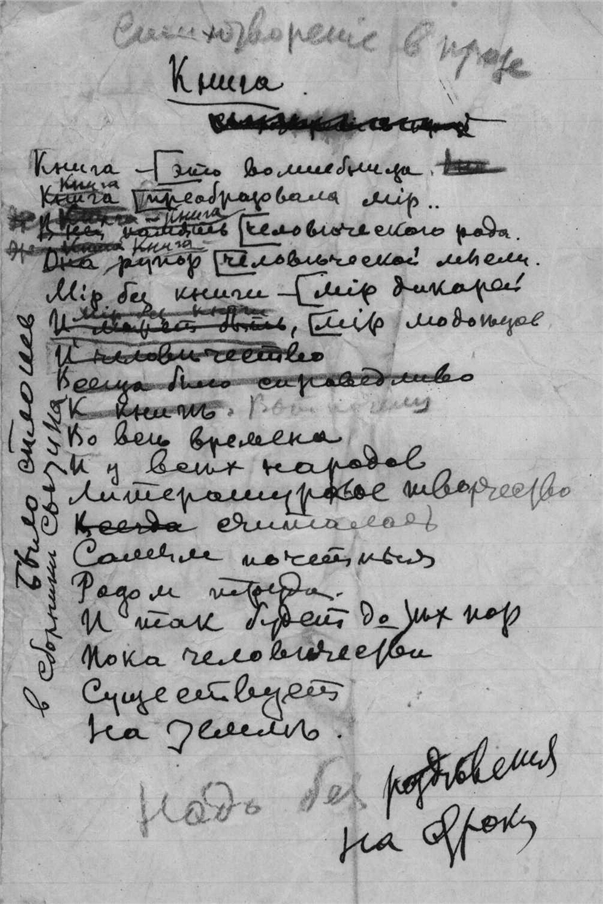 Стихотворение в прозе
Книга
Книга – [это волшебница.
Книга
Книга [преобразовала мір..
Книга – Книга
В ней память [человѣческого рода.
Книга Книга –
Она, рупор [человѣческой мысли.
Мір без книги – [мір дикарей
Мір без книги
И мір [мір
И человѣчество
Всегда было справедливо
К книгѣ. Вот почему
Во всѣ времена
И у всѣх народов
Литературное творчество
Всегда считалось
Самым почетным
Родом труда.
И так будет до тѣх пор
Пока человѣчество
Существует
На землѣ.
Было
в сборники
Надь без раздѣления
на строки